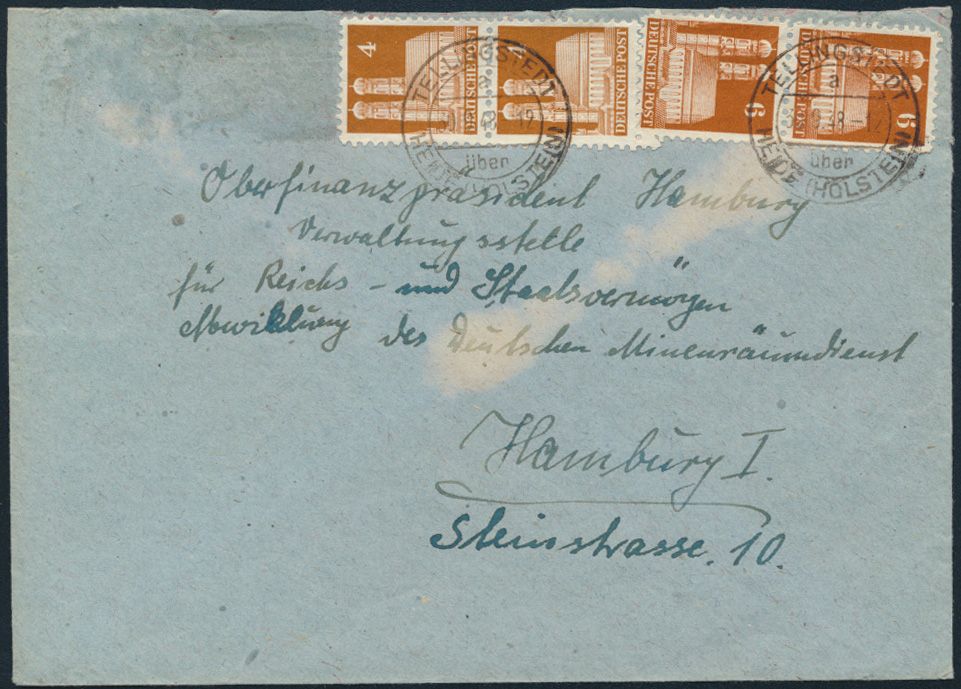 4 DEUTSCHE POST
4 DEUTSCHE POST
6 DEUTSCHE POST
6
TELLINGSTEDT
a
48-12
über
HEIDE (HOLSTEIN)
TELLINGSTEDT
a
48-12
über
HEIDE (HOLSTEIN)
Oberfinanzpräsident Hamburg
Verwaltungsstelle
für Reichs - und Staatsvermögen
Abwicklung des Deutschen Minenräumdienst
Hamburg I.
Steinstrasse. 10.